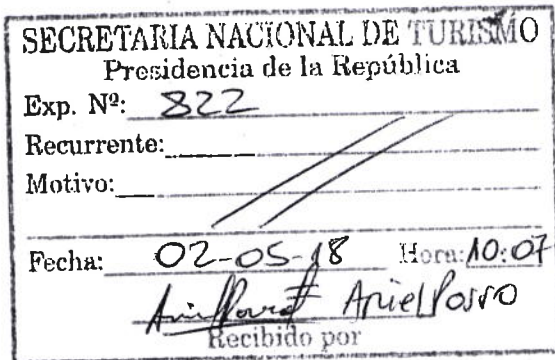 SECRETARIA NACIONAL DE TURISMO
Presidencia de la República
Exp. Nº: 822
Recurrente:
Motivo:
Fecha: 02-05-18 Hora: 10:07
Ariel
Recibido por